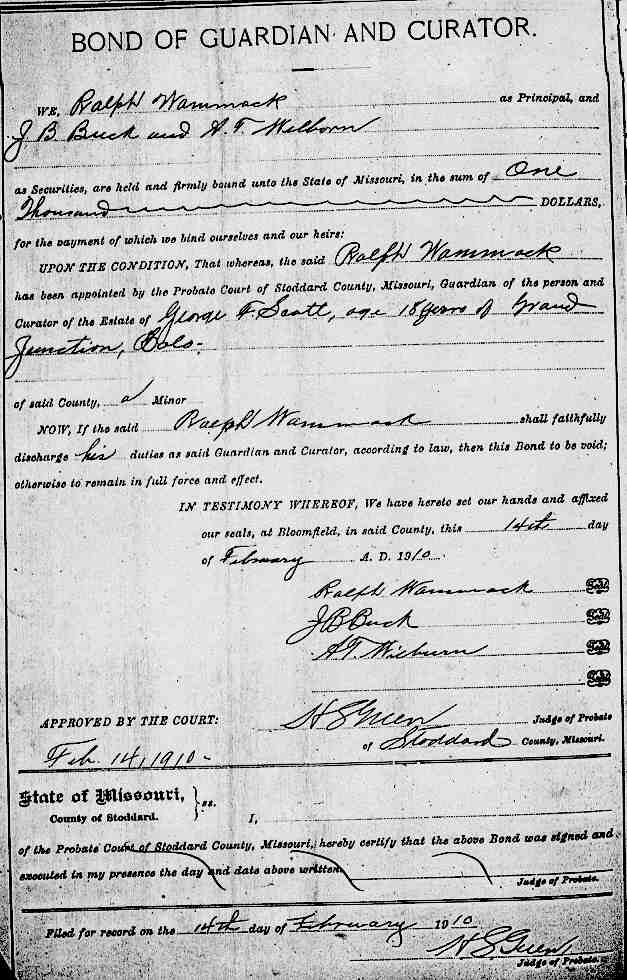 BOND OF GUARDIAN AND CURATOR.
WE, Ralph Wammack as Principal, and
J B Buck and A. T. Welborn
as Securities, are held and firmly bound unto the State of Missouri, in the sum of One
Thousand DOLLARS,
for the payment of which we bind ourselves and our heirs:
UPON THE CONDITION, That whereas, the said Ralph Wammack
has been appointed by the Probate Court of Stoddard County, Missouri, Guardian of the person and
Curator of the Estate of George F. Scott, age 18 years of Grand
Junction, Colo.
of said County, a Minor
NOW, If the said Ralph Wammack shall faithfully
discharge his duties as said Guardian and Curator, according to law, then this Bond to be void;
otherwise to remain in full force and effect.
IN TESTIMONY WHEREOF, We have hereto set our hands and affixed
our seals, at Bloomfield, in said County, this 14th day
of February A. D. 1910.
Ralph Wammack Seal
J B Buck Seal
A. T. Wilburn Seal
Seal
APPROVED BY THE COURT: H S Green Judge of Probate
Feb. 14, 1910- of Stoddard County, Missouri.
State of Missouri, } ss.
County of Stoddard. I,
of the Probate Court of Stoddard County, Missouri, hereby certify that the above Bond was signed and
executed in my presence the day and date above written.
Judge of Probate.
Filed for record on the 14th day of February 1910
H S Green
Judge of Probate.